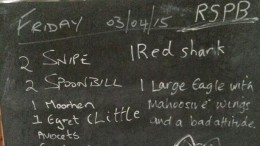 FRIDAY 03/04/15 RSPB
2 SNIPE
2 SPOONBILL
1 Moorhen
1 Egret (Little
Avocets
1 Red shank
1 Large Eagle with
Mahoosive wings
and a bad attitude.